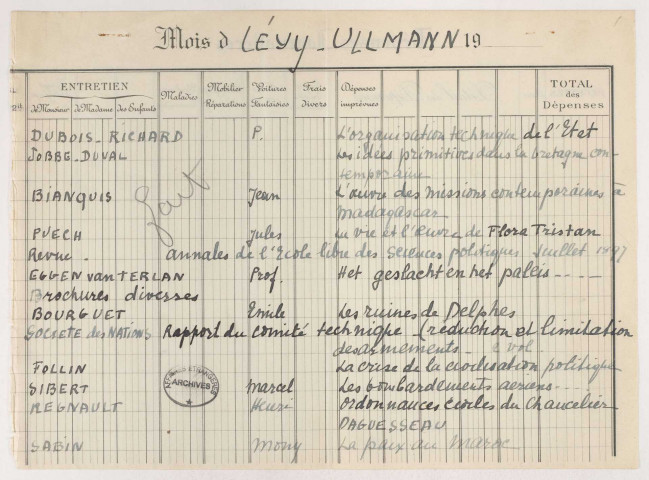 Mois d LÉVY-ULLMANN 19
ENTRETIEN
de Monsieur de Madame des Enfants Malades Mobilier Réparations Voitures Fantaisies Frais divers Dépenses imprévues TOTAL des Dépenses
DUBOIS-RICHARD P. L'organisation technique de l'Etat
JOBBE-DUVAL Les idées primitives dans la bretagne con-
temporaine
BIANQUIS Jean L'œuvre des missions contemporaines à
madagascar
PUECH Jules La vie et l'œuvre de Flora Tristan
Revue - annales de l'Ecole libre des sciences politiques Juillet
EGGEN van TERLAN Prof. Het geslacht en het paleis - - - -
Brochures diverses
BOURGUET Emile Les ruines de Delphes
SOCIETE des NATIONS Rapport du comité technique - (réduction et limitation
des armements - 2 vol
FOLLIN La crise de la civilisation politique
SIBERT marcel Les bombardements aeriens - - - -
REGNAULT Henri Ordonnances civiles du Chancelier
DAGUESSEAU
SABIN mony La paix au maroc
fait
ARCHIVES